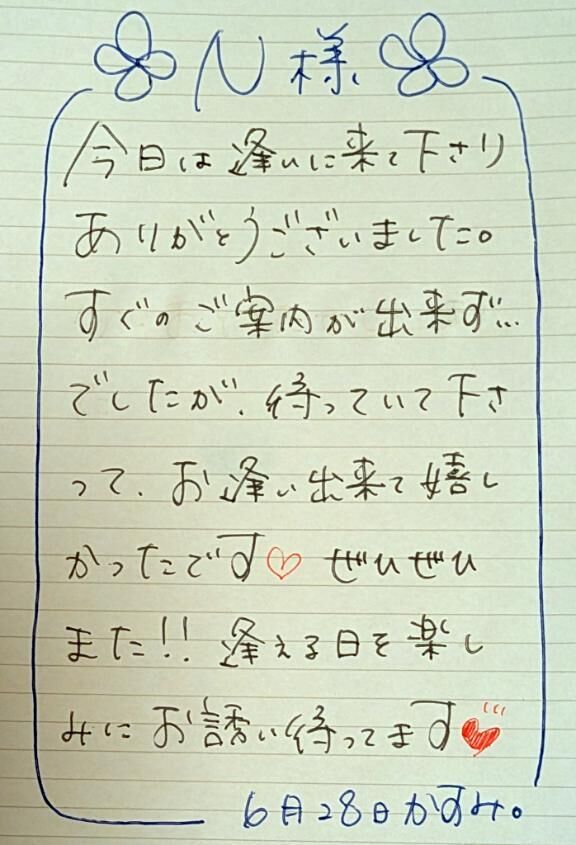 N様
今日は逢いに来て下さり
ありがとうございました。
すぐのご案内が出来ず...
でしたが、待っていて下さ
って、お逢い出来て嬉し
かったです♡ ぜひぜひ
また!! 逢える日を楽し
みにお誘い待ってます♥
6月28日かすみ。